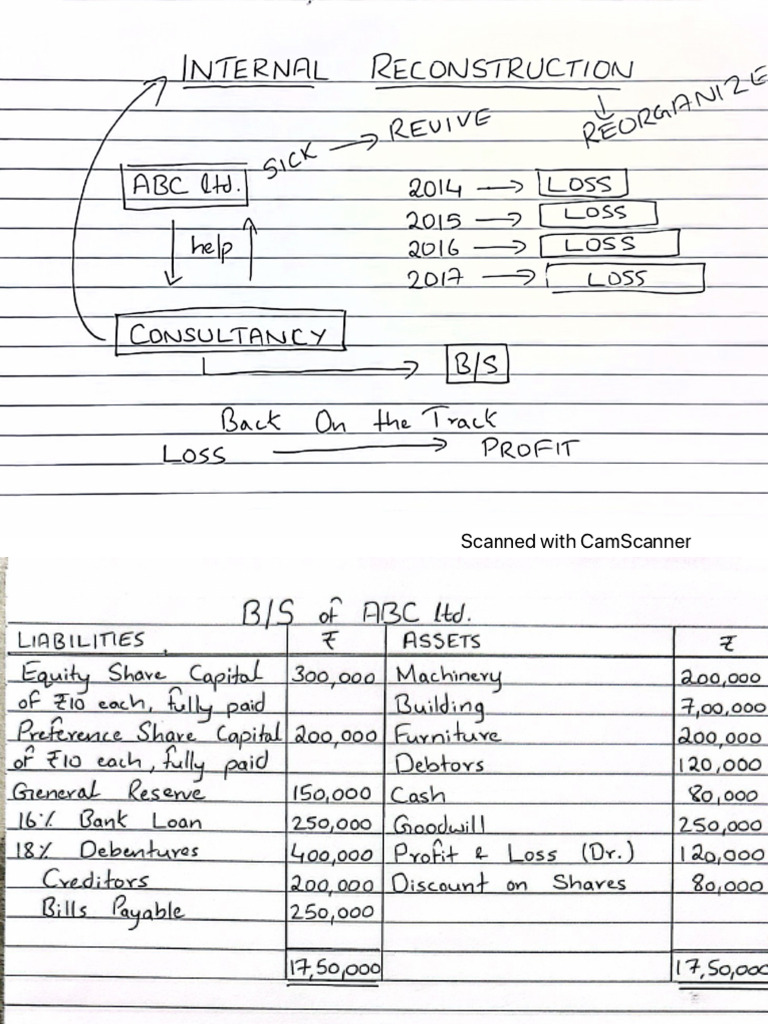 INTERNAL RECONSTRUCTION
REORGANIZE
SICK → REVIVE
ABC ltd.
2014 → LOSS
2015 → LOSS
help
2016 → LOSS
2017 → LOSS
CONSULTANCY
B/S
Back On the Track
LOSS → PROFIT
Scanned with CamScanner
B/S of ABC ltd.
LIABILITIES ₹ ASSETS ₹
Equity Share Capital 300,000 Machinery 200,000
of ₹10 each, fully paid Building 7,00,000
Preference Share Capital 200,000 Furniture 200,000
of ₹10 each, fully paid Debtors 120,000
General Reserve 150,000 Cash 80,000
16% Bank Loan 250,000 Goodwill 250,000
18% Debentures 400,000 Profit & Loss (Dr.) 120,000
Creditors 200,000 Discount on Shares 80,000
Bills Payable 250,000
17,50,000 17,50,000